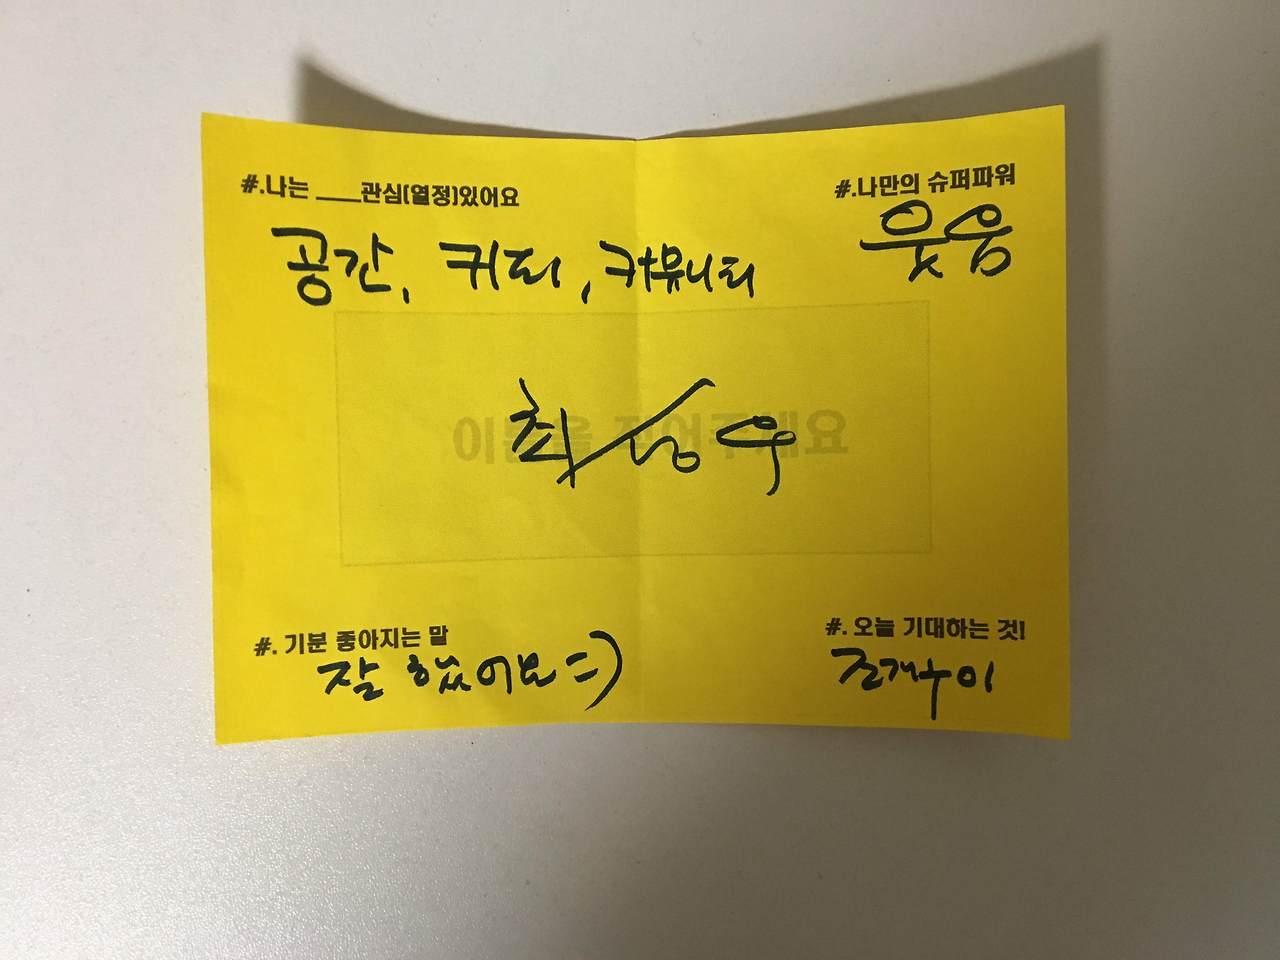 #.나는 ___관심(열정)있어요
공간, 커피, 커뮤니티
#.나만의 슈퍼파워
웃음
이름을 적어주세요
최성우
#. 기분 좋아지는 말
잘 했어요=)
#. 오늘 기대하는 것!
조개구이